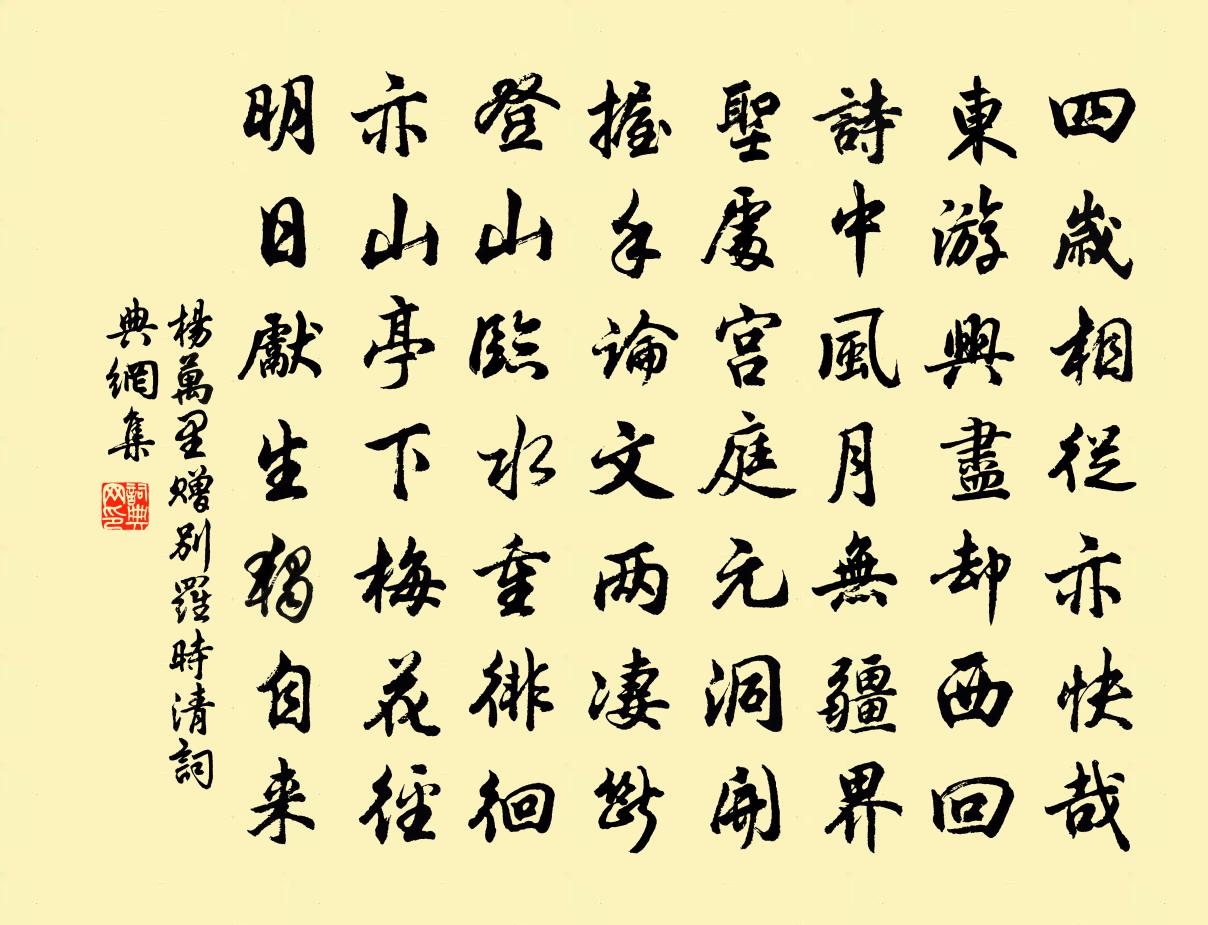 四歲相從亦快哉
東游興盡却西回
詩中風月無疆界
聖處宫庭元洞開
握手論文两凄斷
登山臨水重徘徊
亦山亭下梅花徑
明日獻生獨自来
楊萬里贈別羅時清詞
典網集
詞典
网印